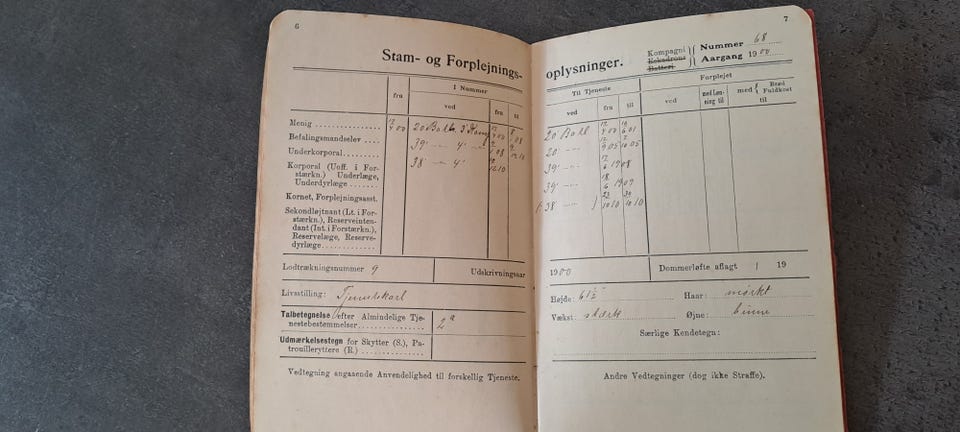 6
Stam- og Forplejnings-
I Nummer
fra
ved
fra
til
Menig
20 Batl.
Befalingsmandselev
39
4
Underkorporal
38
4
Korporal (Uoff. i For-
stærkn.) Underlæge,
Underdyrlæge
Kornet, Forplejningsasst.
Sekondløjtnant (Lt. i For-
stærkn.), Reserveinten-
dant (Int. i Forstærkn.),
Reservelæge, Reserve-
dyrlæge
Lodtrækningsnummer 9
Udskrivningsaar
Livsstilling: Tjenestekarl
Talbetegnelse efter Almindelige Tje-
nestebestemmelser
2
Udmærkelsestegn for Skytter (S.), Pa-
trouilleryttere (R.)
Vedtegning angaaende Anvendelighed til forskellig Tjeneste.
7
oplysninger.
Kompagni
Eskadrons
Batteri
Nummer 68
Aargang 1900
Til Tjeneste
Forplejet
ved
fra
til
ved
med Løn-
ning til
med { Brød
Fuldkost
til
20 Batl
20
39
39
38
1900
Dommerløfte aflagt
19
Højde: 61½"
Haar: mørkt
Vækst: stærk
Øjne:
Særlige Kendetegn:
Andre Vedtegninger (dog ikke Straffe).